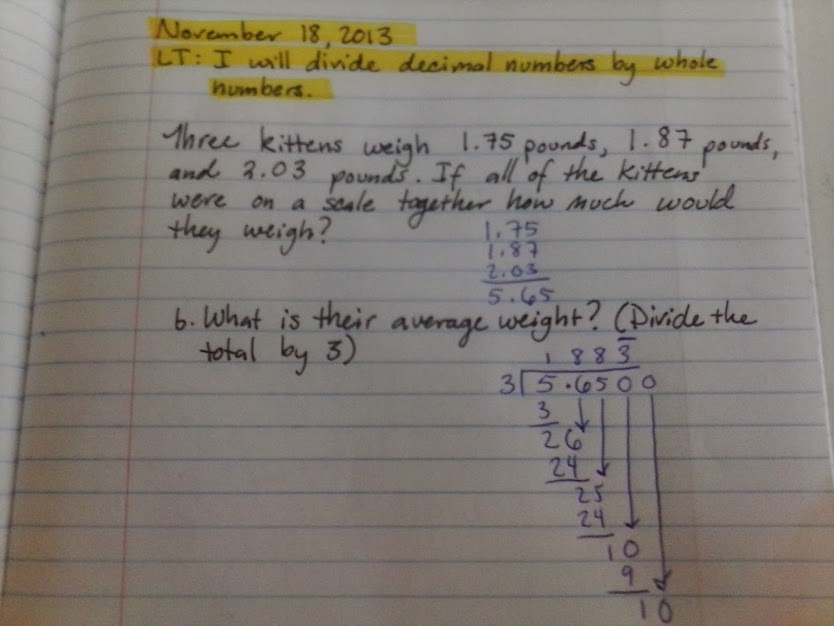 November 18, 2013
LT: I will divide decimal numbers by whole
numbers.
Three kittens weigh 1.75 pounds, 1.87 pounds,
and 2.03 pounds. If all of the kittens
were on a scale together how much would
they weigh?
1.75
1.87
2.03
5.65
b. What is their average weight? (Divide the
total by 3)
1 8 8 3̅
3 5.6500
3
26
24
25
24
10
9
10